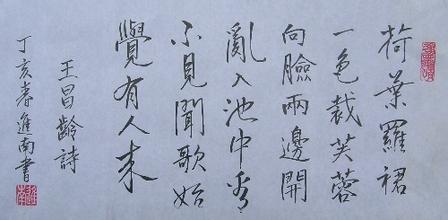 荷葉羅裙
一色裁芙蓉
向臉兩邊開
亂入池中看
不見聞歌始
覺有人來
王昌齡詩
丁亥春進南書